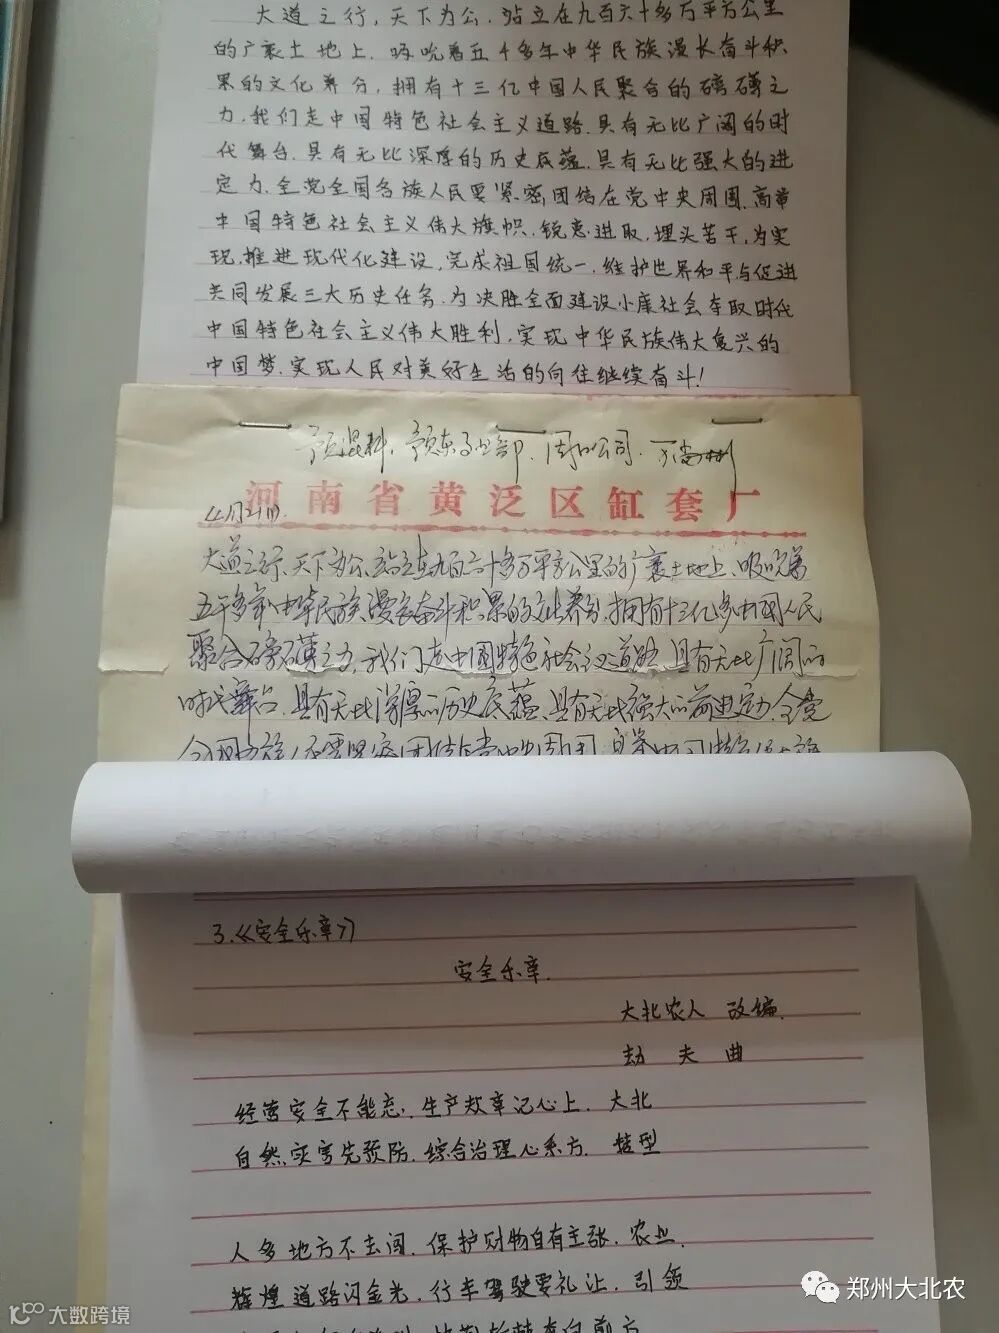 大道之行，天下为公，站立在九百六十多万平方公里
的广袤土地上，吸吮着五千多年中华民族漫长奋斗积
累的文化养分，拥有十三亿中国人民聚合的磅礴之
力，我们走中国特色社会主义道路，具有无比广阔的时
代舞台，具有无比深厚的历史底蕴，具有无比强大的进
定力，全党全国各族人民要紧密团结在党中央周围，高举
中国特色社会主义伟大旗帜，锐意进取，埋头苦干，为实
现，推进现代化建设，完成祖国统一，维护世界和平与促进
共同发展三大历史任务，为决胜全面建设小康社会夺取时代
中国特色社会主义伟大胜利，实现中华民族伟大复兴的
中国梦，实现人民对美好生活的向往继续奋斗！
预混料，豫东事业部，周口公司，
河南省黄泛区缸套厂
大道之行、天下为公、站立在九百六十多万平方公里的广袤土地上、吸吮着
五千多年中华民族漫长奋斗积累的文化养分，拥有十三亿多中国人民
聚合磅礴之力，我们走中国特色社会主义道路，具有无比广阔的
时代舞台，具有无比深厚的历史底蕴，具有无比强大的前进定力，全党
3.《安全乐章》
安全乐章.
大北农人 改编.
劫夫 曲
经营安全不能忘，生产效率记心上，大北
自然灾害先预防，综合治理心系方，转型
人多地方不去闯，保护财物自有主张，农业，
辉煌道路闪金光，行车驾驶要礼让，引领
郑州大北农
大数跨境